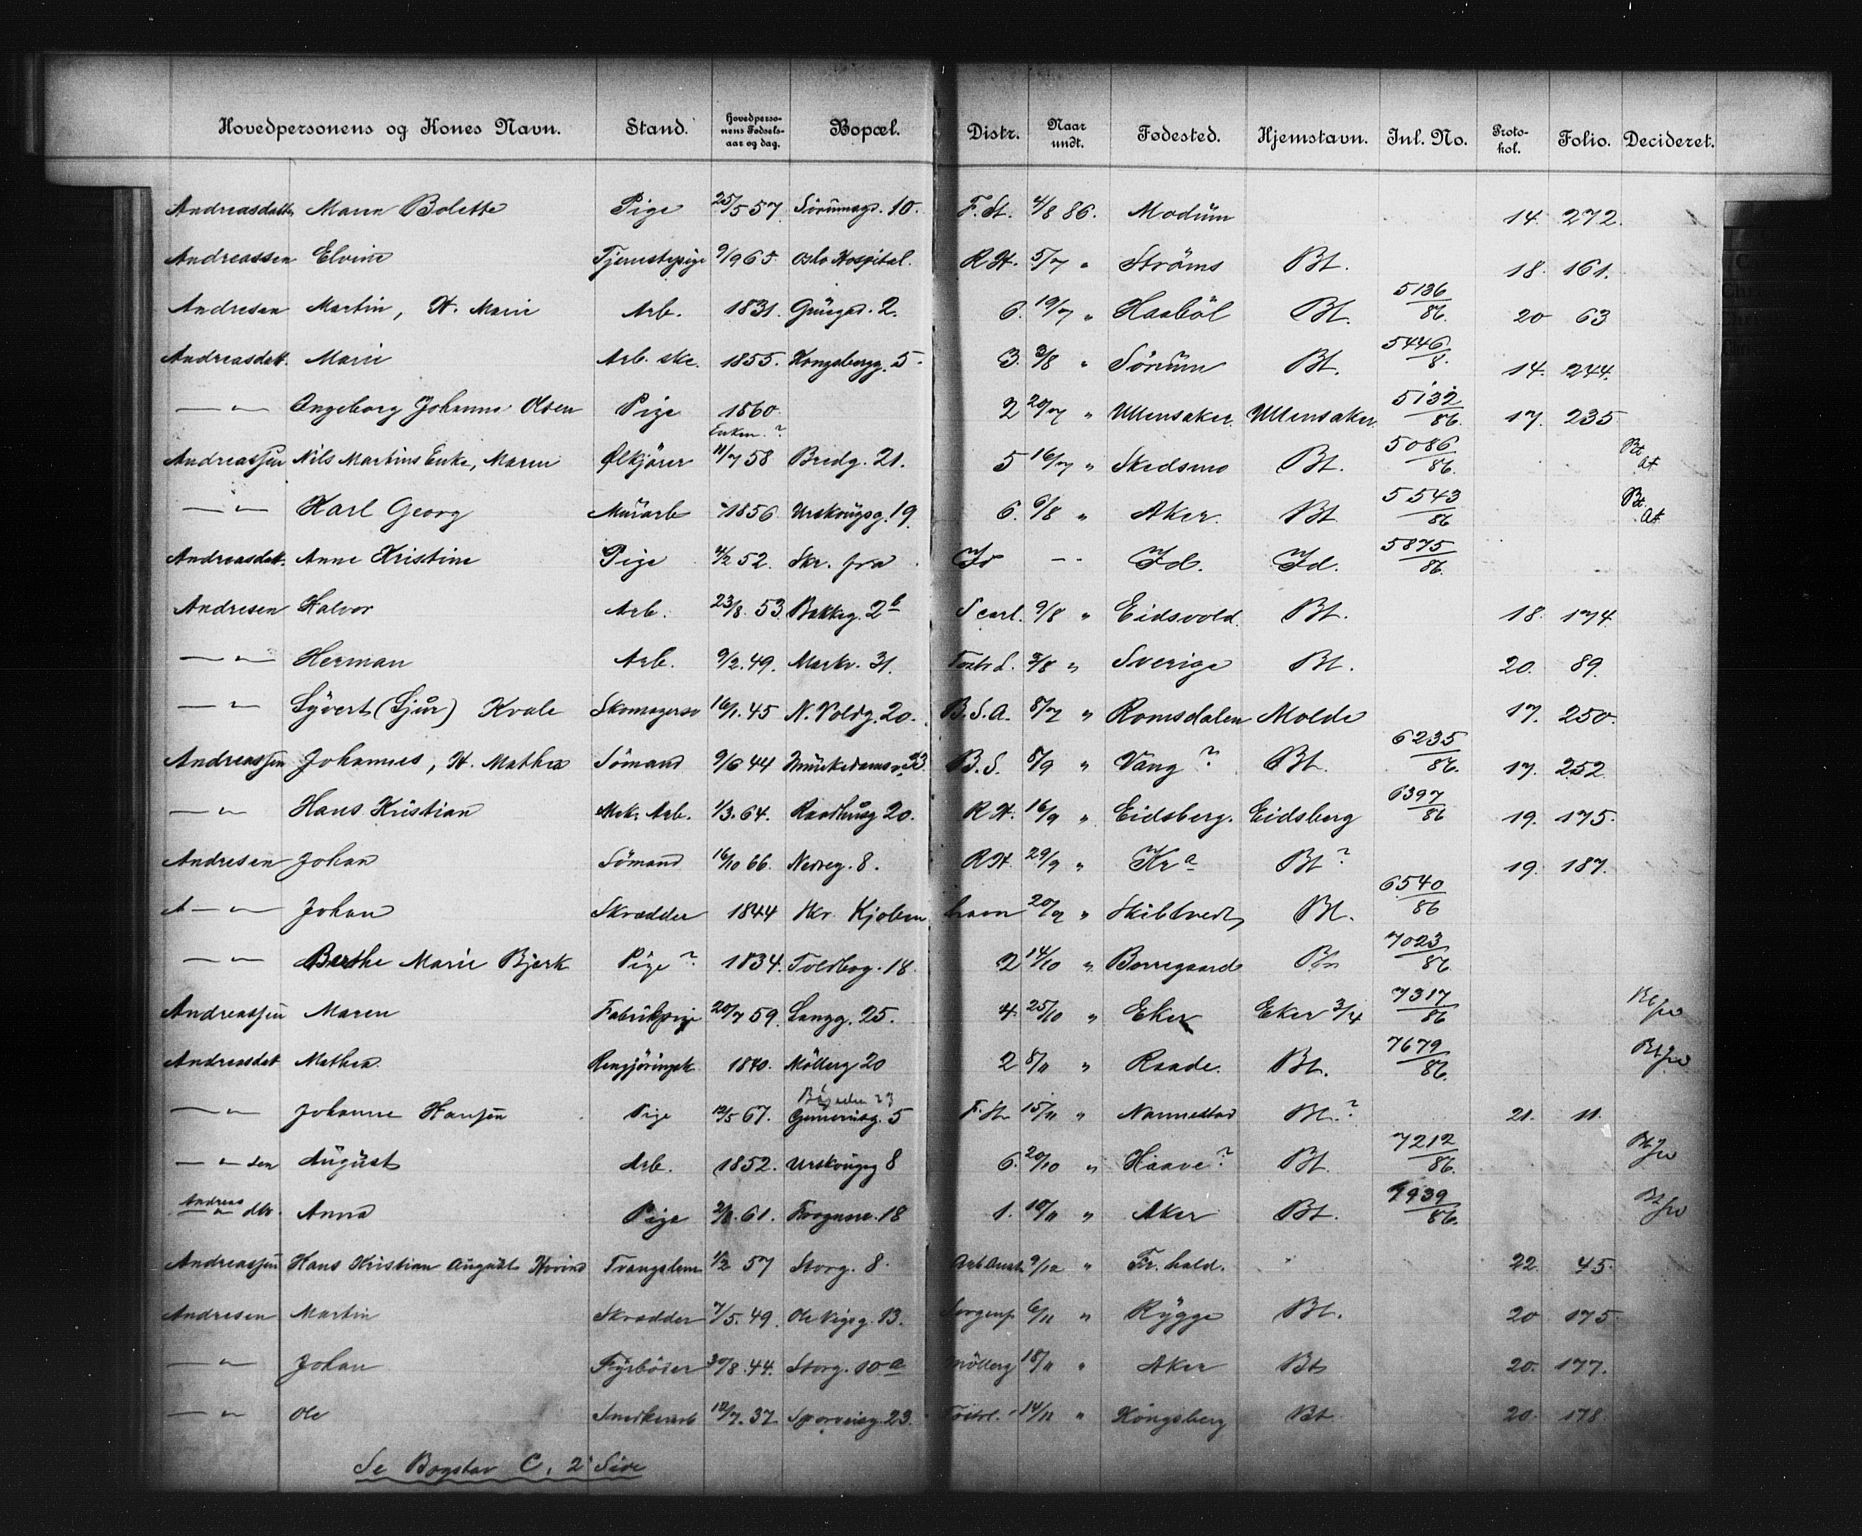 Hovedpersonens og Kones Navn. Stand. Hovedpersonens Fødselsaar og dag. Bopæl. Distr. Naar undt. Fødested. Hjemstavn. Inl. No. Protokol. Folio. Decideret.
Andreasdatter Maren Bolette Pige 25/5 57. Sørumsgd. 10. F. St. 4/8 86. Modum 14. 272.
Andreassen Elvine Tjenestepige 9/9 65 Oslo Hospital. R.H. 5/7 " Strøms Bt. 18. 161.
Andresen Martin, H. Marie Arb. 1831. Grüegd. 2. 6. 19/7 " Haabøl Bt. 5136/86. 20 63
Andreasdatt. Marie Arb. ske. 1855. Kongsbergg. 5. 3. 3/8 " Sörum Bt. 5446/8. 14. 244.
— " — Ingeborg Johanne Olsen Pige 1860. 2 20/7 " Ullensaker. Ullensaker. 5132/86. 17. 235
Enken ?
Andreassen Nils Martins Enke, Maren Ølkjører 11/7 58 Bredg. 21. 5 16/7 " Skedsmo Bt. 5086/86. Bt. at
— " — Karl Georg Murarb 1856 Urskougsg. 19. 6. 6/8 " Aker. Bt 5543/86 Bt. at
Andreasdatt. Anne Kristine Pige 4/2 52. Skr. fra Id — Id. Id. 5875/86.
Andresen Halvor Arb. 23/8. 53 Bakkeg. 2b 9/8 " Eidsvold. Bt. 18. 174
— " — Herman Arb. 9/2. 49. Markv. 31. 3/8 " Sverige Bt. 20. 89.
— " — Syvert (Sjur) Kvale Skomagersv 16/1. 45 N. Voldg. 20. B.S.A. 8/7 " Romsdalen Molde 17. 250.
Andreassen Johannes, H. Mathea Sømand 9/6 44 Munkedamsv. 33. B.S. 8/9 " Vang ? Bt. 6235/86. 17. 252
— " — Hans Kristian Mek. Arb. 1/3. 64. Raadhusg 20. R.H. 16/9 " Eidsberg. Eidsberg 6397/86 19. 175.
Andresen Johan Sømand 16/10 66. Nedreg. 8. R.H. 29/9 " Kra Bt ? 19. 187.
A — " — Johan Skrædder 1844 Skr. Kjøbenhavn 20/9 " Skibtvedt Bt. 6540/86
— " — Berthe Marie Bjerk Pige ? 1834. Toldbog. 18. 2 14/10 " Borregaard Bt 7023/86
Andreassen Maren Fabrikpige 20/7 59. Langg. 25. 4. 25/10 " Eker Eker 3/4 7317/86 Bt
Andreasdat Mathea Rengjöringsk. 1840. Möllerg 20 2 8/11 " Raade. Bt. 7679/86. Bt
Bögaden 23
— " — Johanne Hansen Pige 12/5 67. Gruneriusg. 5 F. St 15/11 " Nannestad Bt. ? 21. 11.
— " — sen August Arb. 1852. Urskougsg 8 6. 20/10 " Haave ? Bt. 7212/86. Bt
Andreas dtr. Anna Pige 61. Frognerv. 18 1. 10/11 " Aker Bt. 7939/86. Bt
Andreassen Hans Kristian August Hovind Tvangslem 1/2 57 Storg. 8. Arb Anst 9/12 " Fr. hald. " 22. 45.
Andresen Martin Skrædder 7/5. 49. Ole Vigsg. 13. Sorgenf 6/11 " Rygge Bt. 20 175
— " — Johan Fyrbøder 30/8. 44. Storg. 10 a Möllerg 18/11 " Aker Bt 20. 177.
— " — Ole Snedkerarb 12/7. 37. Sporveisg. 23. 14/11 " Kongsberg Bt 20. 178
Se Bogstav C, 2 Side